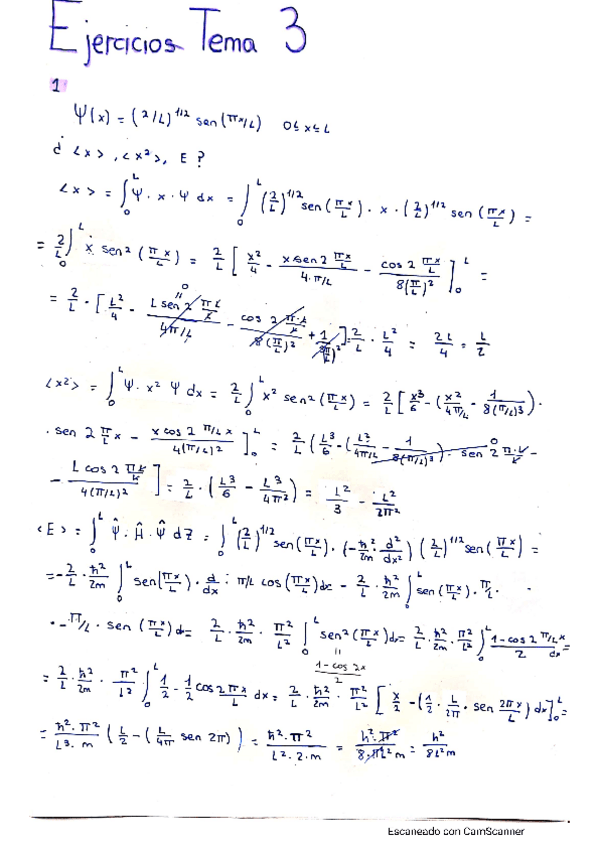 Ejercicios Tema 3
1
Ψ(x) = (2/L)^1/2 sen(πx/L)   0≤x≤L
¿ <x>, <x²>, E ?
<x> = ∫₀ᴸ Ψ · x · Ψ dx = ∫₀ᴸ (2/L)^1/2 sen(πx/L) · x · (2/L)^1/2 sen(πx/L) =
= 2/L ∫₀ᴸ x sen²(πx/L) = 2/L [ x²/4 - (x sen 2 πx/L)/(4·π/L) - (cos 2 πx/L)/(8(π/L)²) ]₀ᴸ =
0
= 2/L · [ L²/4 - (L sen 2 πL/L)/(4π/L) - (cos 2 π·L/L)/(8(π/L)²) + 1/(8(π/L)²) ] = 2/L · L²/4 = 2L/4 = L/2
<x²> = ∫₀ᴸ Ψ · x² Ψ dx = 2/L ∫₀ᴸ x² sen²(πx/L) = 2/L [ x³/6 - (x²/(4π/L) - 1/(8(π/L)³)) ·
· sen 2 π/L x - (x cos 2 π/L x)/(4(π/L)²) ]₀ᴸ = 2/L ( L³/6 - (L²/(4π/L) - 1/(8(π/L)³)) · sen 2 π·L/L 0 -
- (L cos 2 πL/L)/(4(π/L)²) ] = 2/L · ( L³/6 - L³/4π² ) = L²/3 - L²/2π²
<E> = ∫₀ᴸ Ψ̂ · Ĥ · Ψ dZ = ∫₀ᴸ (2/L)^1/2 sen(πx/L) · (-ħ²/2m · d²/dx²) (2/L)^1/2 sen(πx/L) =
= -2/L · ħ²/2m ∫₀ᴸ sen(πx/L) · d/dx · π/L cos(πx/L) dx - 2/L · ħ²/2m ∫₀ᴸ sen(πx/L) · π/L ·
· -π/L · sen(πx/L) dx = 2/L · ħ²/2m · π²/L² ∫₀ᴸ sen²(πx/L) dx = 2/L · ħ²/2m · π²/L² ∫₀ᴸ (1-cos 2 π/L x)/2 dx =
= (1-cos 2x)/2
= 2/L · ħ²/2m · π²/L² ∫₀ᴸ 1/2 - 1/2 cos 2πx/L dx = 2/L · ħ²/2m · π²/L² [ x/2 - (1/2 · L/2π · sen 2πx/L) dx ]₀ᴸ =
= ħ²·π²/L³·m ( L/2 - ( L/4π sen 2π) ) = ħ²·π²/L²·2·m = h²·π²/8·π²L²m = h²/8L²m
Escaneado con CamScanner